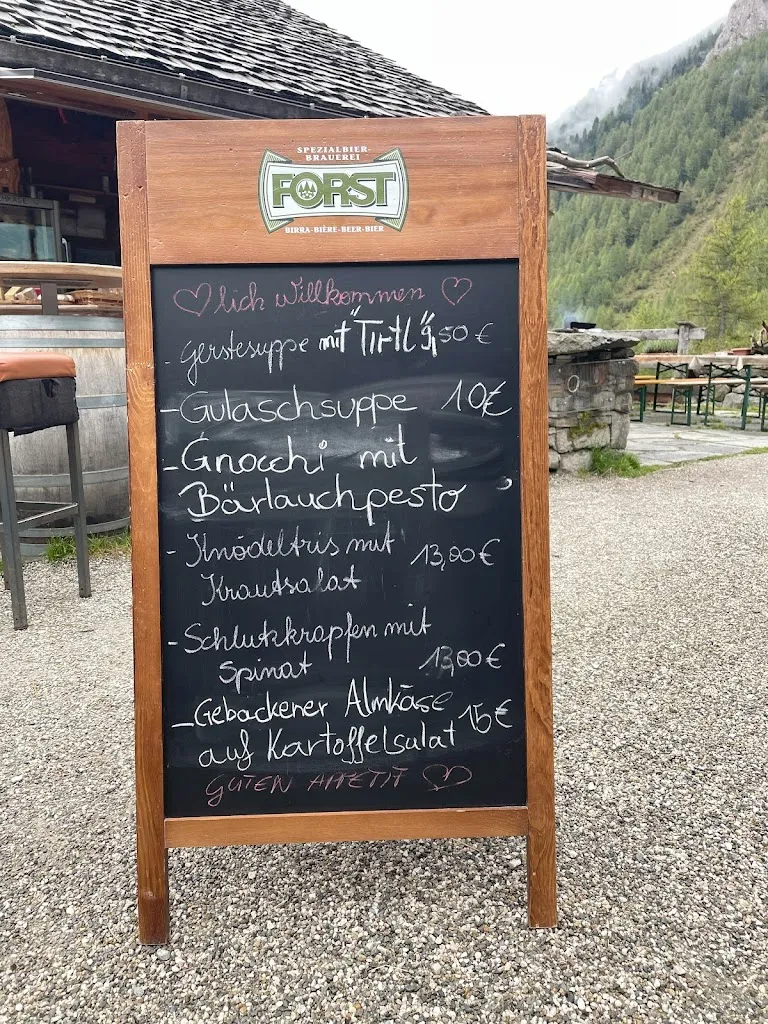 SPEZIALBIER-
BRAUEREI
FORST
BIRRA-BIÈRE-BEER-BIER
♡lich willkommen ♡
- Gerstesuppe mit "Tirtl" 9,50 €
- Gulaschsuppe 10€
- Gnocchi mit
Bärlauchpesto
- Knödeltris mit 13,00 €
Krautsalat
- Schlutzkrapfen mit
Spinat 13,00 €
- Gebackener Almkäse
auf Kartoffelsalat 15€
GUTEN APPETIT ♡